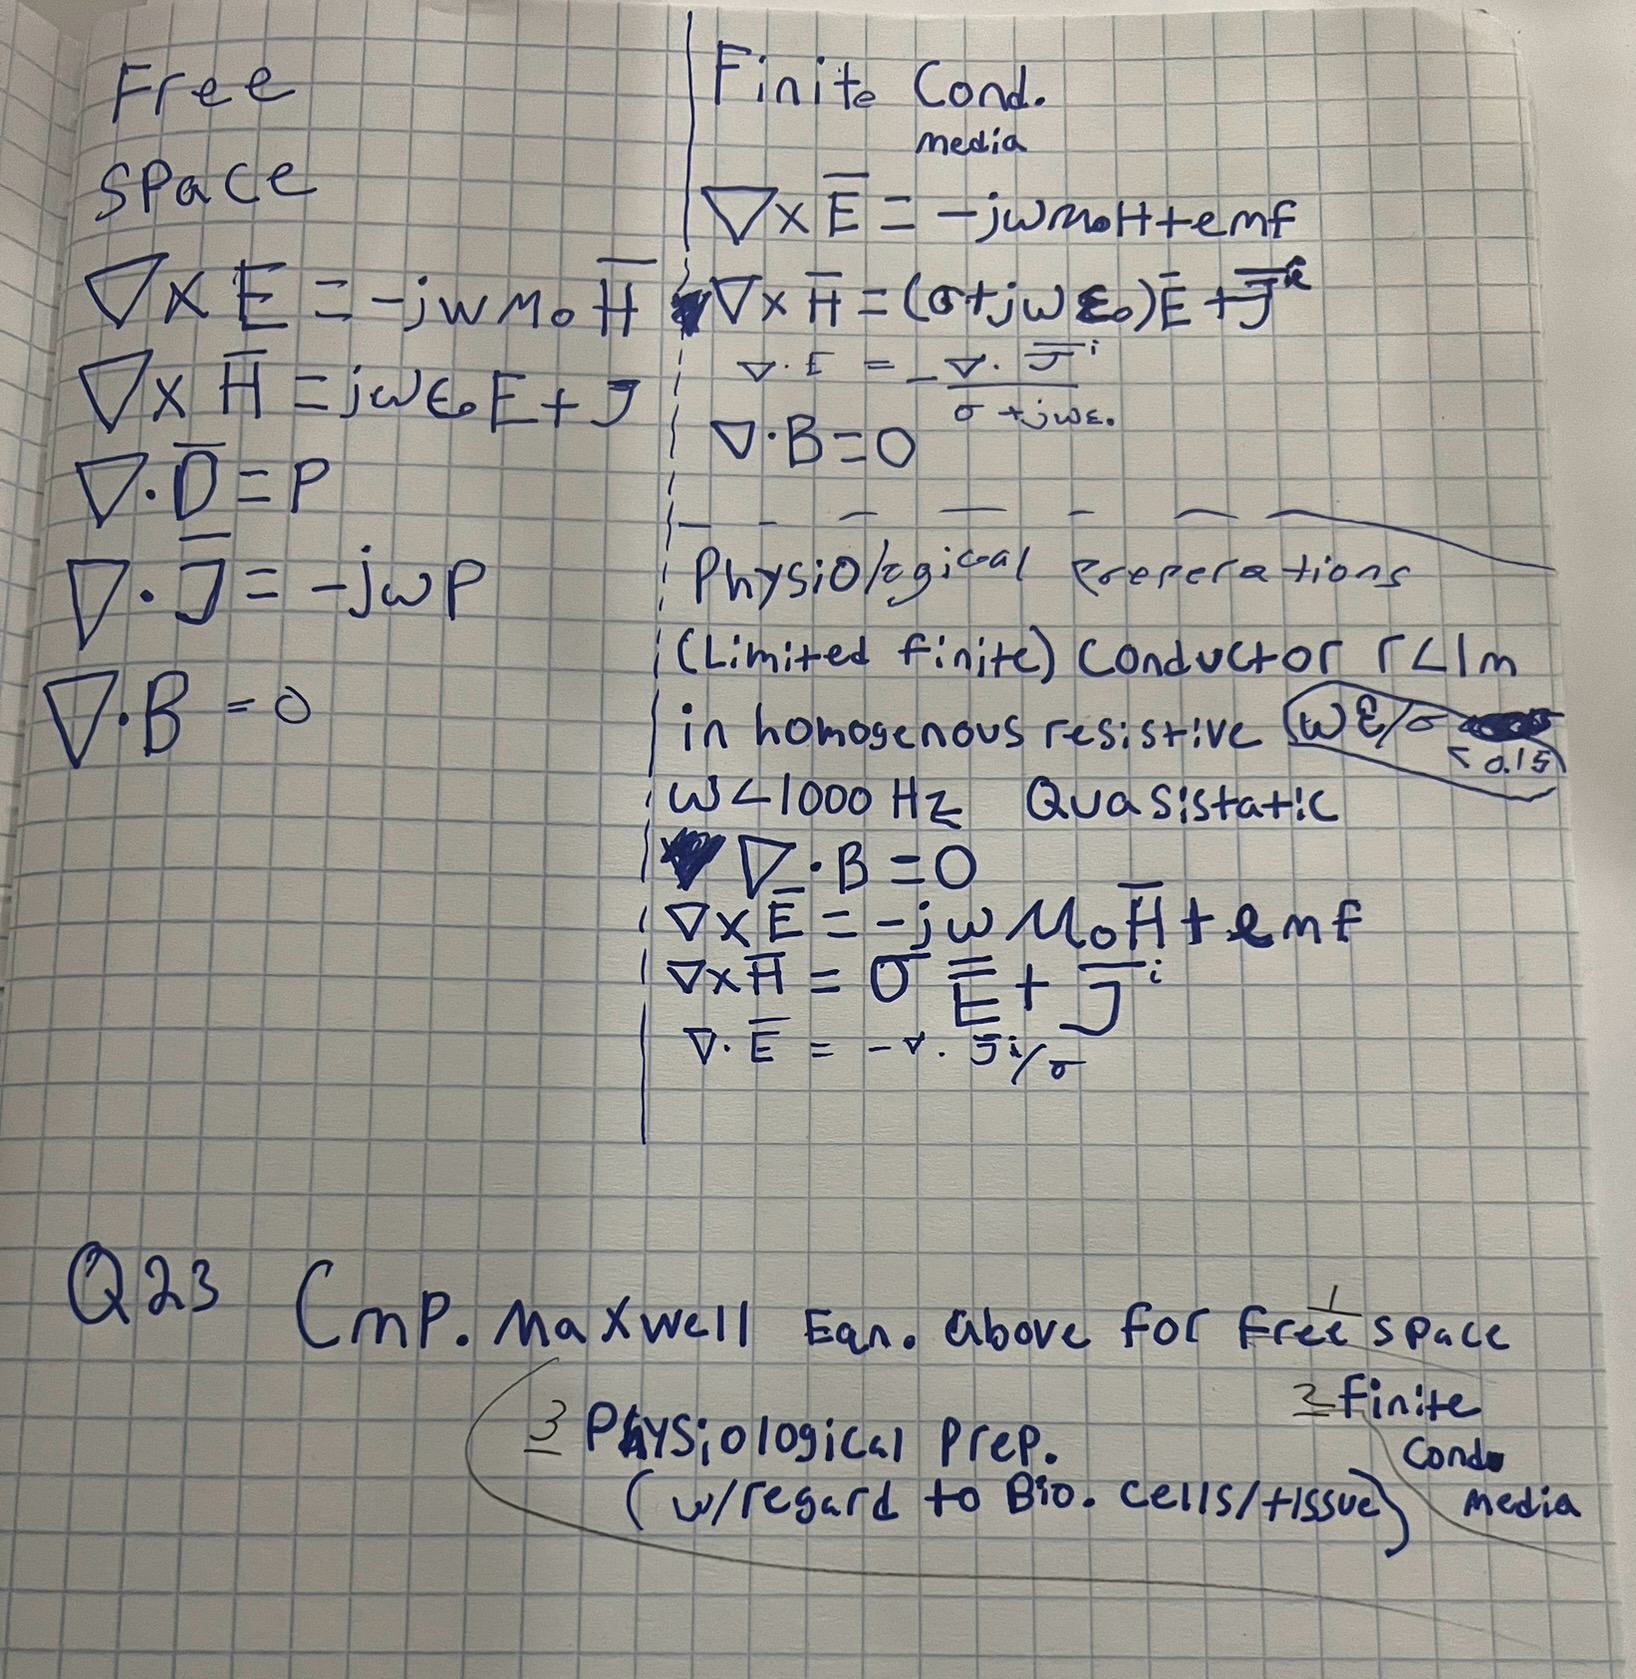 Free
Space
∇x E = -jwM₀ H̅
∇x H̅ = jωϵ₀E + J
∇·D̅ = P
∇·J̅ = -jωP
∇·B = 0
Finite Cond.
media
∇x E̅ = -jωM₀H+emf
∇x H̅ = (σ+jωε₀)E̅ + J̅ⁱ
∇·E = -∇·J̅ⁱ / σ+jωε₀
∇·B=0
Physiological Preperations
(Limited finite) Conductor r<1m
in homogenous resistive ωε/σ
< 0.15
ω<1000 Hz Quasistatic
∇·B=0
∇xE̅ = -jωM₀H̅+emf
∇xH̅ = σE̅ + J̅ⁱ
∇·E̅ = -∇·J̅ⁱ/σ
Q23 Cmp. Maxwell Eqn. above for 1 free space
2 Finite
Cond
media
3 Physiological Prep.
(w/regard to Bio. cells/tissue)